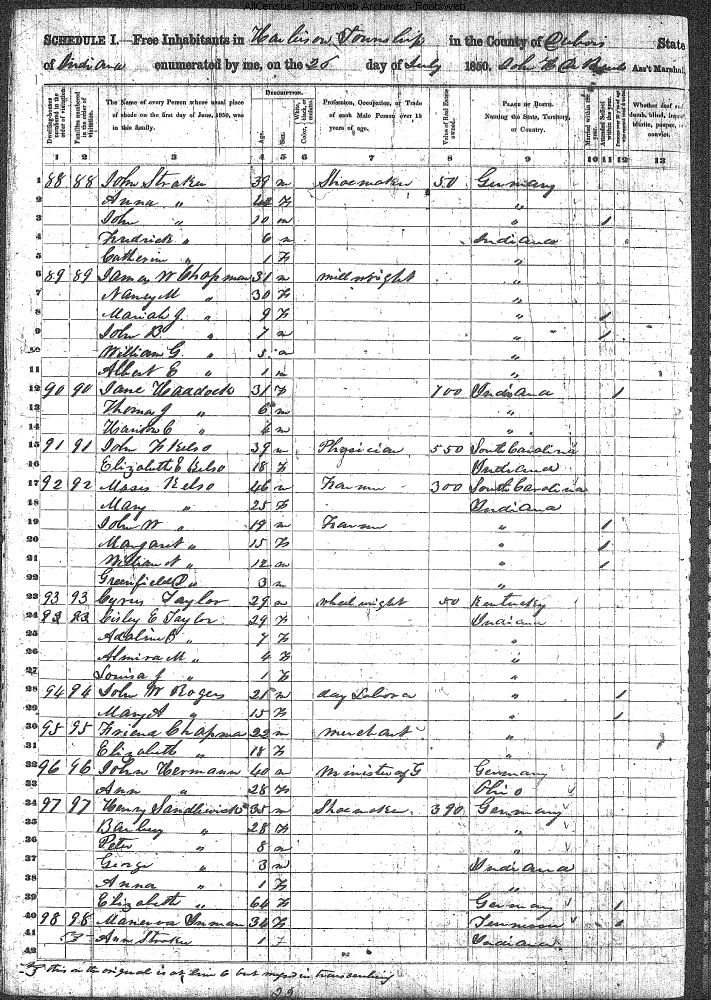 AllCensus - USGenWeb Archives - Rootsweb
SCHEDULE I.—Free Inhabitants in Harbison Township in the County of Dubois State
of Indiana enumerated by me, on the 26 day of July 1850. John H. Ass't Marshal.
Dwelling-houses numbered in the order of visitation. Families numbered in the order of visitation. The Name of every Person whose usual place of abode on the first day of June, 1850, was in this family. DESCRIPTION. Age. Sex. White, black, or mulatto. Color, Profession, Occupation, or Trade of each Male Person over 15 years of age. Value of Real Estate owned. PLACE OF BIRTH. Naming the State, Territory, or Country. Married within the year. Attended School within the year. Whether deaf and dumb, blind, insane, idiotic, pauper, or convict.
1 2 3 4 5 6 7 8 9 10 11 12 13
1 88 88 John Straker 39 m Shoemaker 50 Germany
2 Anna " F "
3 John " 10 m " 1
4 Fredrick " 6 m Indiana
5 Catherin " 1 F "
6 89 89 James W Chapman 31 m millwright "
7 Nancy M " 30 F "
8 Mariah J. " 9 F " 1
9 John B. " 7 m " 1
10 William G. " 5 m "
11 Albert E " 1 m "
12 90 90 Jane Haddock 31 F 700 Indiana 1
13 Thomas J " 6 m "
14 Harison C " 4 m "
15 91 91 John F Kelso 39 m Physician 550 South Carolina
16 Elizabeth E Kelso 18 F Indiana
17 92 92 Moses Kelso 46 m Farmer 300 South Carolina
18 Mary " 25 F Indiana
19 John W " 19 m Farmer " 1
20 Margaret " 15 F " 1
21 William N " 12 m " 1
22 Greenfield D " 3 m "
23 93 93 Cyrus Taylor 29 m wheelwright 50 Kentucky
24 93 93 Cisley E Taylor 29 F Indiana
25 Adaline B " 7 F "
26 Almira M " 4 F "
27 Louisa J " 1 F "
28 94 94 John W Rogers 21 m day Labora " 1
29 Mary A " 15 F " 1
30 95 95 Friend Chapman 22 m merchant "
31 Elizabeth " 18 F "
32 96 96 John Hermann 40 m Minister of G Germany
33 Ann " 28 F Ohio
34 97 97 Henry Sandlewick 35 m Shoemaker 390 Germany
35 Barbery " 28 F "
36 Peter " 8 m "
37 George " 3 m Indiana
38 Anna " 1 F "
39 Elizabeth " 64 F Germany 1
40 98 98 Manerva Inman 34 F Tennessee 1
41 Ann Straker 1 F Indiana
42
this in the original is at line 6 but missed in transcribing